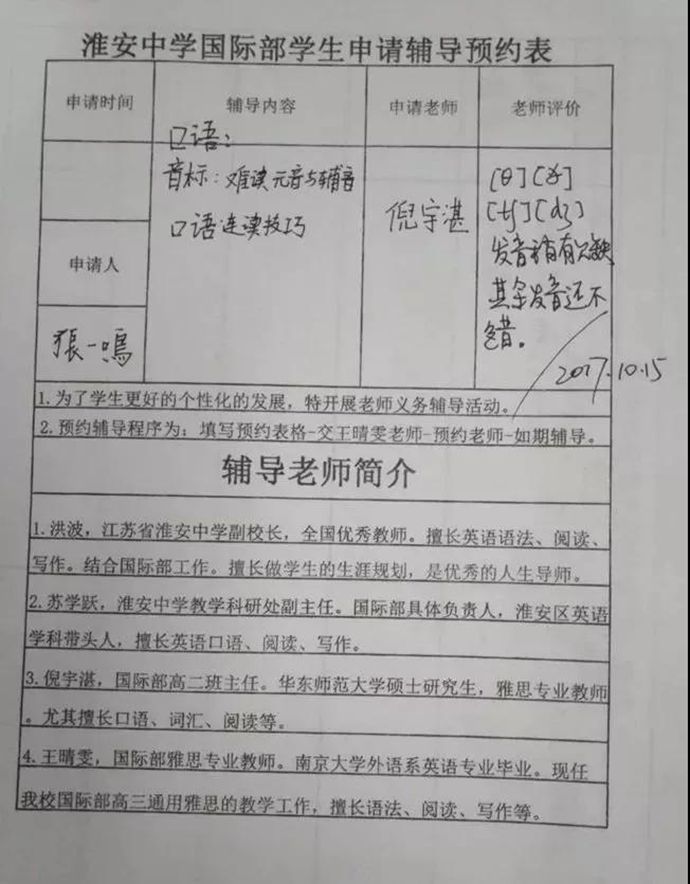 淮安中学国际部学生申请辅导预约表
申请时间 辅导内容 申请老师 老师评价
口语：
音标：难读元音与辅音
口语连读技巧
倪宇湛
[θ][ð]
[tʃ][dʒ]
发音稍有欠缺
其余发音还不
错。
2017.10.15
申请人
张一鸣
1.为了学生更好的个性化的发展，特开展老师义务辅导活动。
2.预约辅导程序为：填写预约表格-交王晴雯老师-预约老师-如期辅导。
辅导老师简介
1.洪波，江苏省淮安中学副校长，全国优秀教师。擅长英语语法、阅读、
写作。结合国际部工作。擅长做学生的生涯规划，是优秀的人生导师。
2.苏学跃，淮安中学教学科研处副主任。国际部具体负责人，淮安区英语
学科带头人，擅长英语口语、阅读、写作。
3.倪宇湛，国际部高二班主任。华东师范大学硕士研究生，雅思专业教师
。尤其擅长口语、词汇、阅读等。
4.王晴雯，国际部雅思专业教师。南京大学外语系英语专业毕业。现任
我校国际部高三通用雅思的教学工作，擅长语法、阅读、写作等。